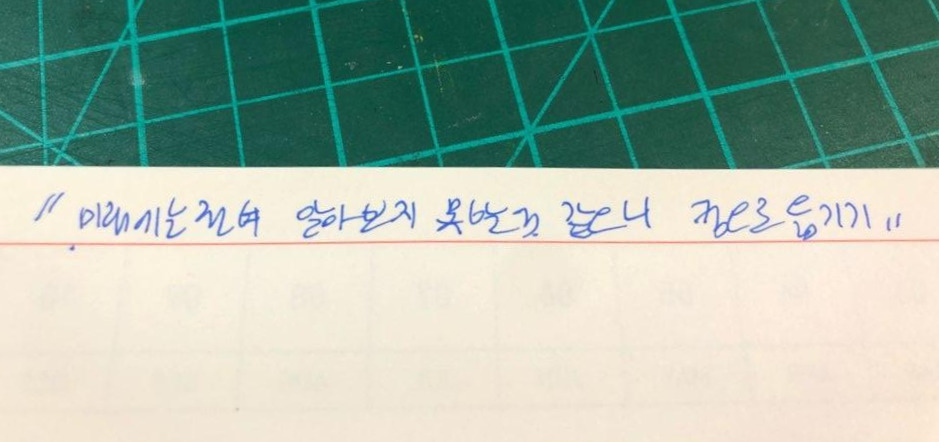 "미래에는 전혀 알아보지 못하는 것 같으니 펜으로 옮기기"